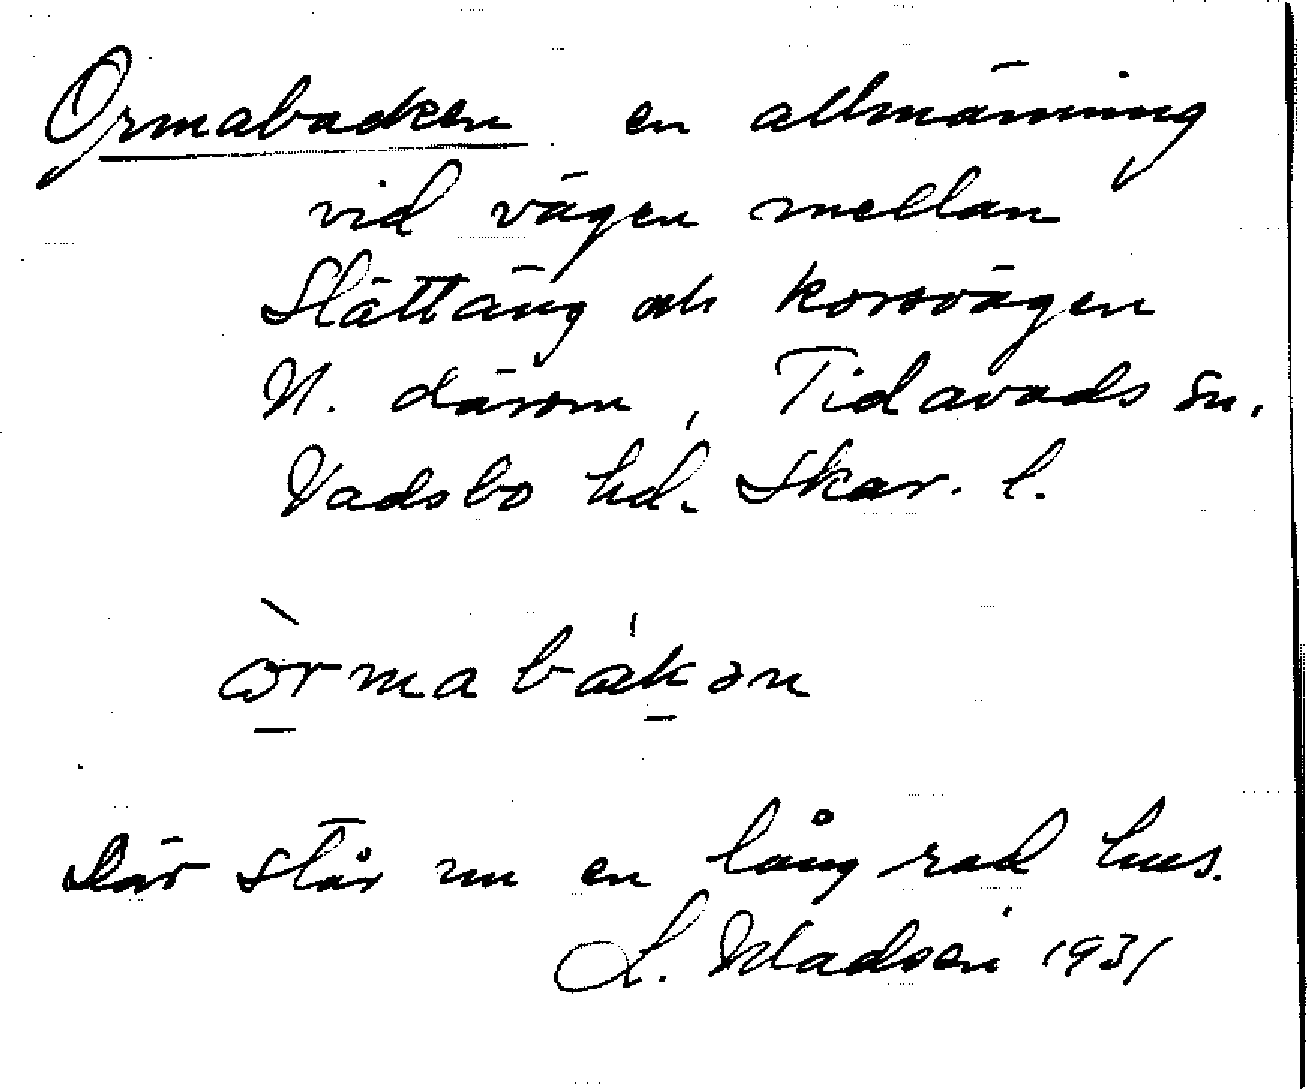 Ormabacken en allmänning
vid vägen mellan
Slättäng och korsvägen
N. därom, Tidavads sn.
Vadsbo hd. Skar. l.
òrmabákən
Där står nu en lång rad hus.
L. 1931